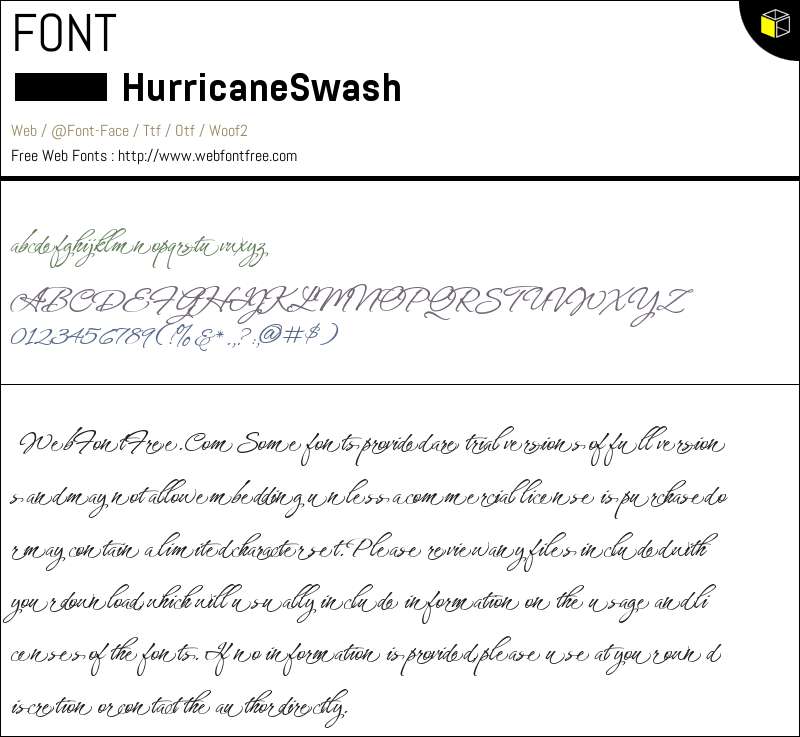 FONT
HurricaneSwash
Web / @Font-Face / Ttf / Otf / Woof2
Free Web Fonts : http://www.webfontfree.com
abcdefghijklmnopqrstuvwxyz
ABCDEFGHIJKLMNOPQRSTUVWXYZ
0123456789(!%&*.,?:;@#$)
WebFontFree.Com Some fonts provided are trial versions of full version
s and may not allow embedding unless a commercial license is purchased o
r may contain a limited character set. Please review any files included with
your download, which will usually include information on the usage and li
censes of the fonts. If no information is provided, please use at your own d
iscretion or contact the author directly.